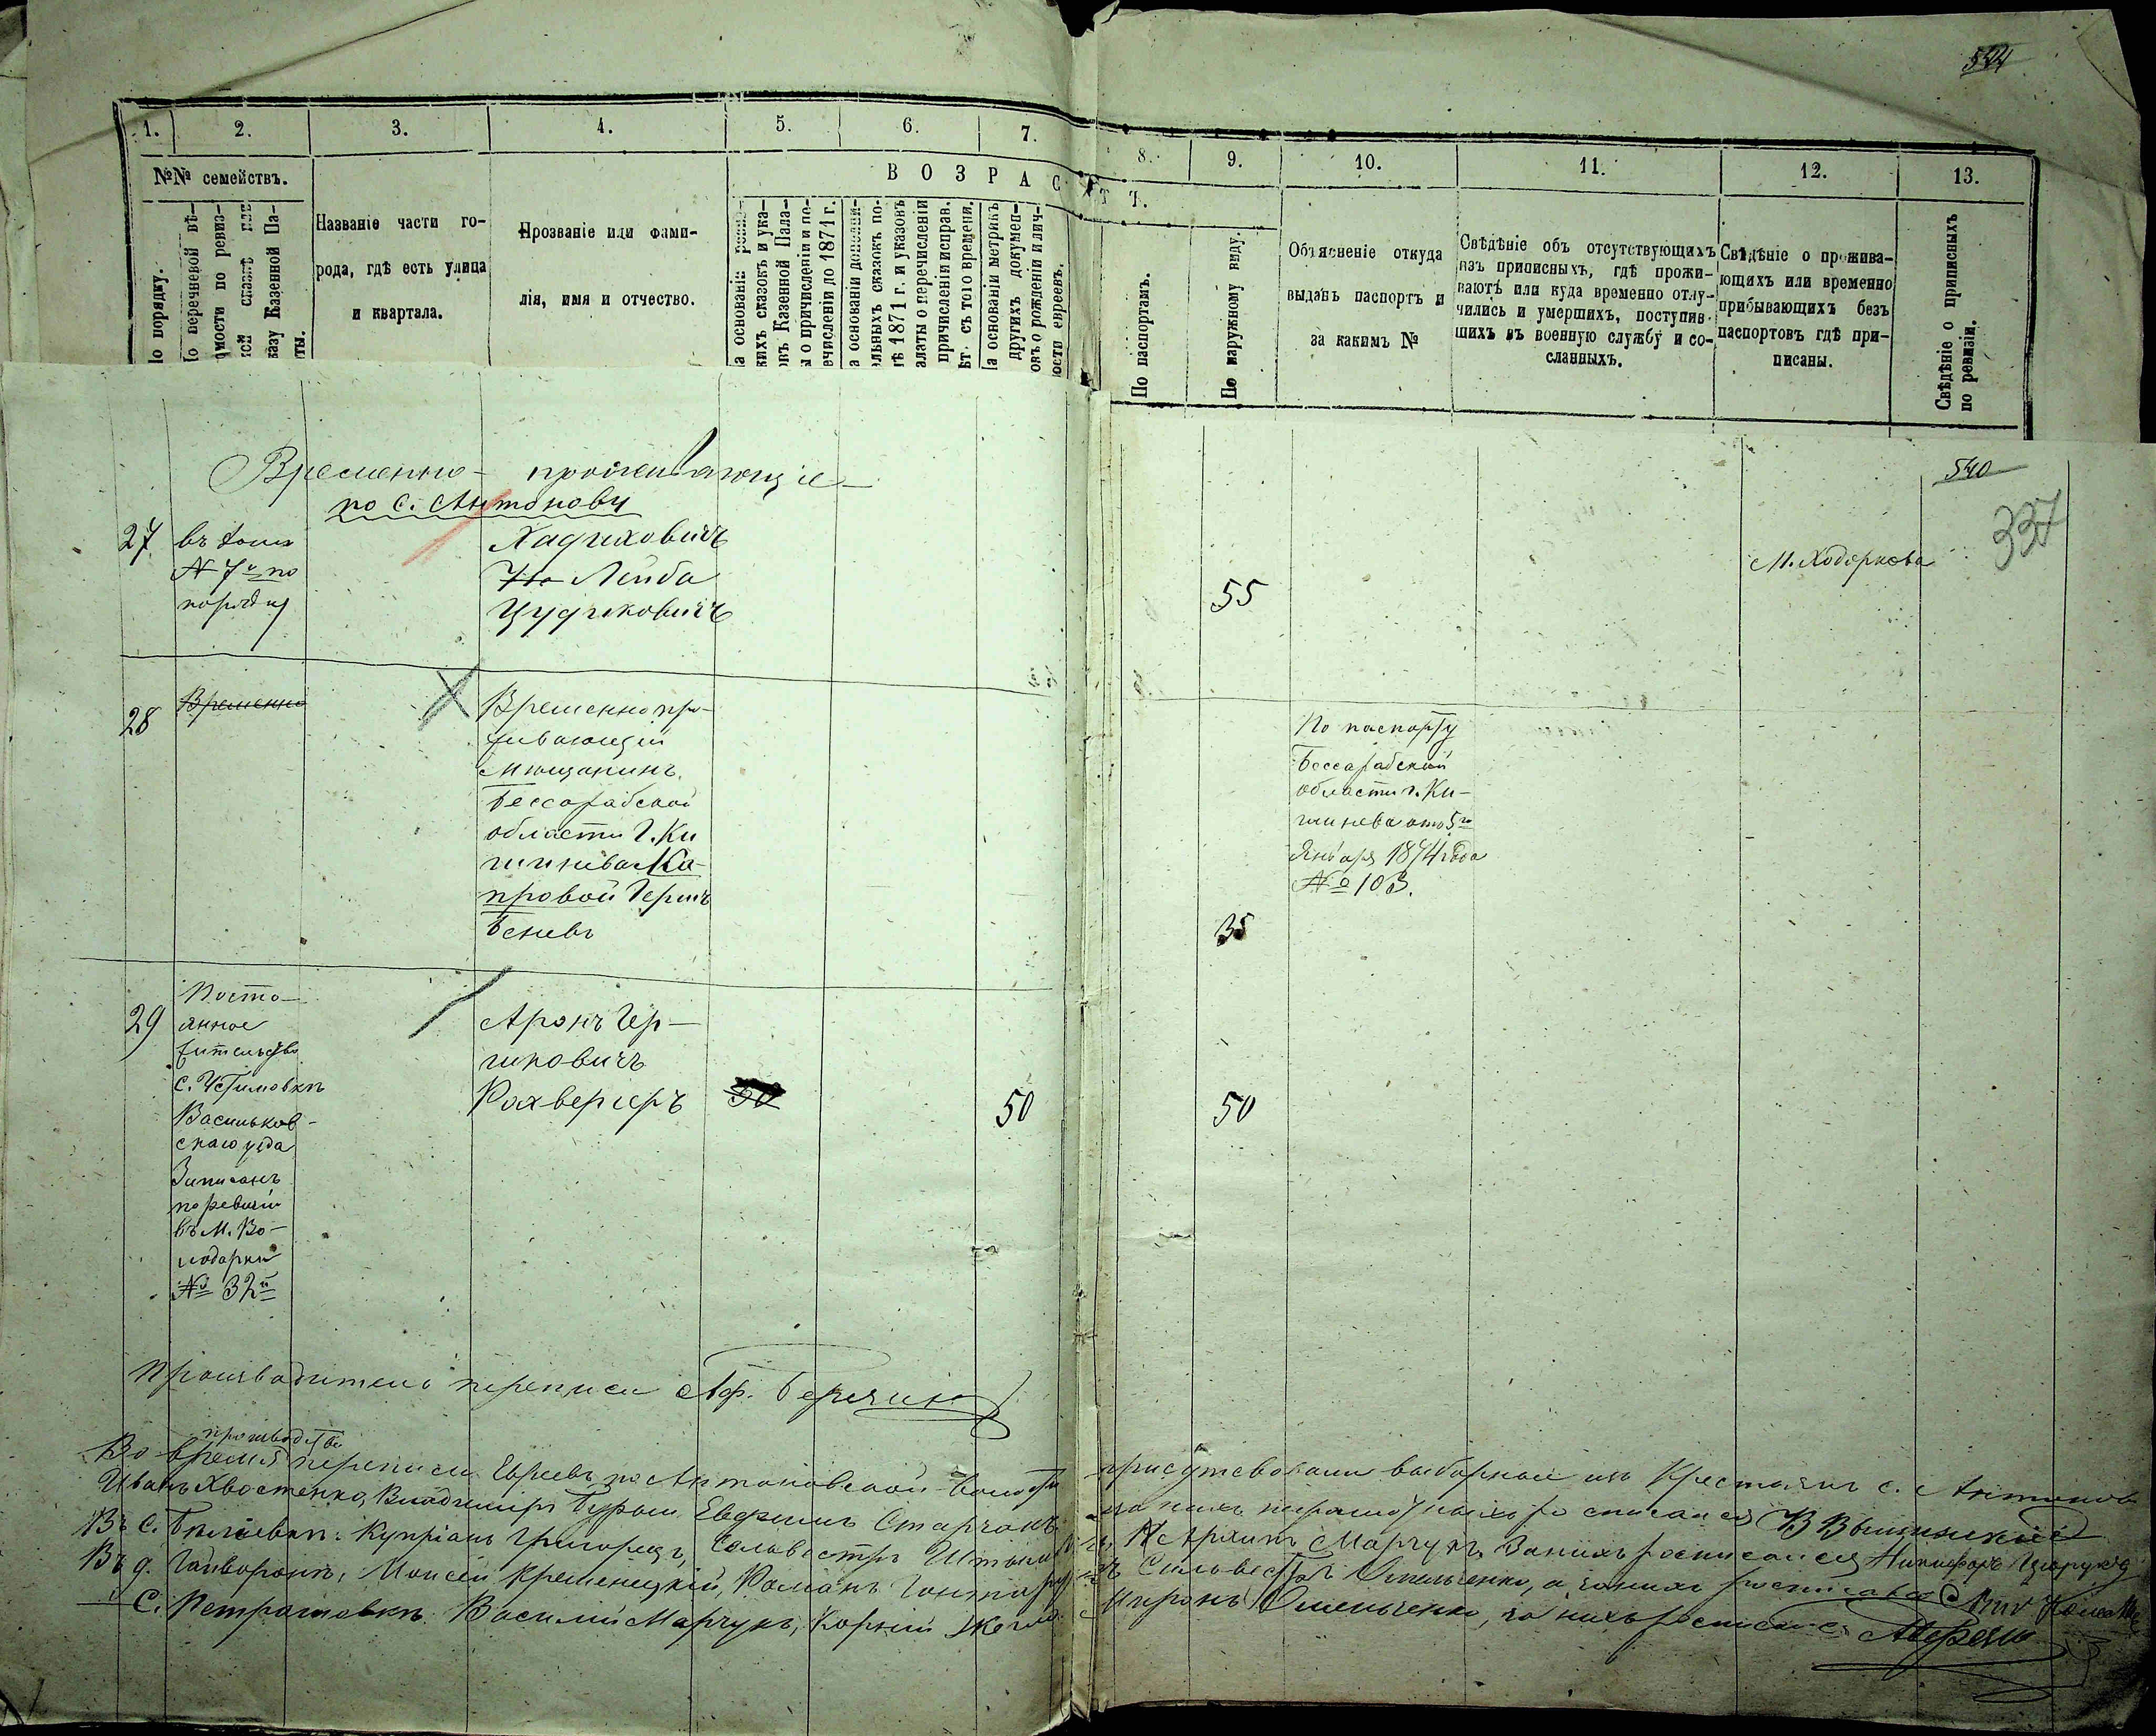 544
1. 2. 3. 4. 5. 6. 7. 8. 9. 10. 11. 12. 13.
№№ семействъ.
ВОЗРАСТЪ.
По порядку.
По перечневой вѣ-
домости по ревиз-
ской сказкѣ или
указу Казенной Па-
латы.
Названіе части го-
рода, гдѣ есть улица
и квартала.
Прозваніе или фами-
лія, имя и отчество.
На основаніи ревиз-
скихъ сказокъ и ука-
зовъ Казенной Пала-
ты о причисленіи и пе-
речисленіи до 1871 г.
На основаніи дополни-
тельныхъ сказокъ по-
слѣ 1871 г. и указовъ
Палаты о перечисленіи
причисленіи исправ.
лѣт. съ того времени.
На основаніи метрикъ
другихъ докумен-
товъ о рожденіи и лич-
ности евреевъ.
По паспортамъ.
По наружному виду.
Объясненіе откуда
выданъ паспортъ и
за какимъ №
Свѣдѣніе объ отсутствующихъ
изъ приписныхъ, гдѣ прожи-
ваютъ или куда временно отлу-
чились и умершихъ, поступив-
шихъ въ военную службу и со-
сланныхъ.
Свѣдѣніе о прожива-
ющихъ или временно
прибывающихъ безъ
паспортовъ гдѣ при-
писаны.
Свѣдѣніе о приписныхъ
по ревизіи.
540
337
Временно-проживающіе
по с. Антонову
27
въ домѣ
№ 7й по
порядку
Лейба
55
М. Ходоркова
28
Временно
Временно про-
живающій
Мѣщанинъ
Бессарабской
области г. Ки
шинева Ка-
провой Герш
35
По паспорту
Бессарабской
области г. Ки-
шинева отъ 5го
Января 1874 года
№ 103.
29
Посто-
янное
жительство
с. Устимовкѣ
Васильков-
скаго уѣзда
Записанъ
по ревизіи
въ М. Во-
лодарки
№ 32й
Аронъ Гер-
шковичъ
50
50
50
Производитель переписи Аф.
производства
Во время переписи Евреевъ по Антоновской волости присутствовали выборные изъ Крестьянъ с. Антонова
Иванъ Хвостенко, Владиміръ Бурый Евфимъ
Въ с. Купріанъ Григорецъ, Марчукъ, за нихъ росписался Никифоръ
Въ д. Гайворонъ, Моисей Кременецкій, Романъ Сильвестръ Омельченко, а за нихъ росписався
с. Петрашовкѣ Василій Марчукъ, Корній Миронъ Омельченко, за нихъ росписался